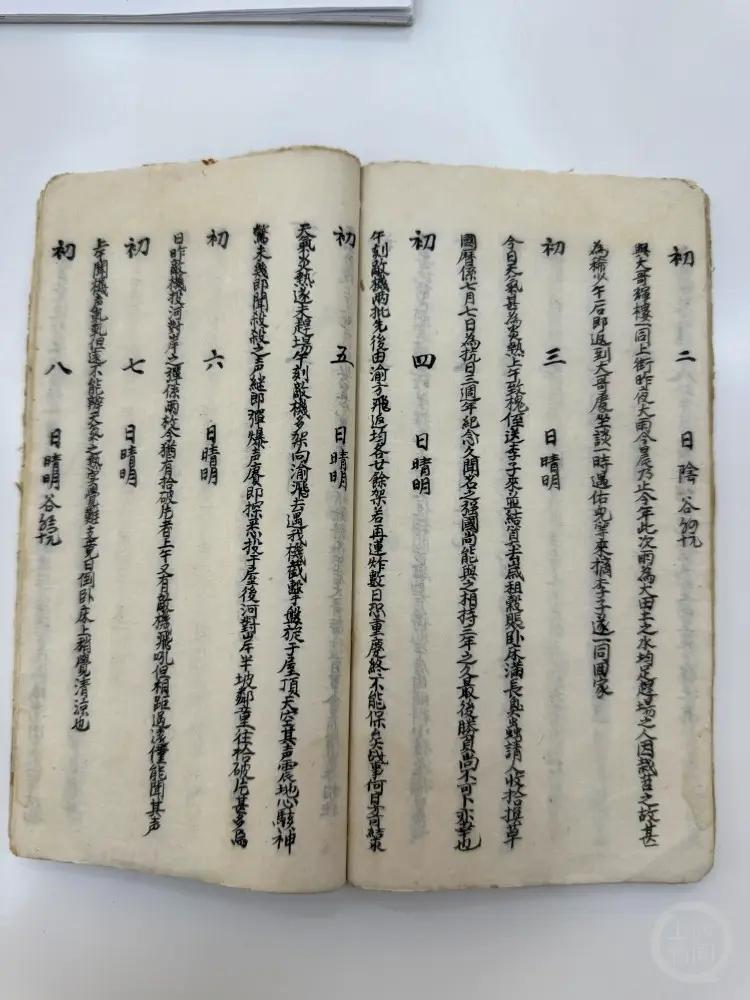 初二日陰
與大哥耀樓一同上街昨夜大雨今晨乃止今年此次雨為大田土之水均足趕場之人因栽苕之故甚
為稀少午后即返到大哥處坐談一時遇佑兒等來摘李子遂一同回家
初三日晴明
今日天氣甚為炎熱上午致槐侄送李子來並結算去歲租穀賬卧床滿長臭蟲請人收拾換草
國曆係七月七日為抗日三週年紀念久聞名之强國尚能與之相持三年之久最後勝負尚不可卜亦幸也
初四日晴明
午刻敵機兩批先後由渝方飛返均各廿餘架若再連炸數日恐重慶終不能保矣戰事何日方可結束
初五日晴明
天氣炎熱遂未趕場午刻敵機多架向渝飛去遇我機截擊盤旋于屋頂天空其聲震地心駭神
驚未幾即聞殺殺之声繼即彈爆声賡即探悉投于屋後河對岸半坡鄰童往拾破片甚多為
初六日晴明
日昨敵機投河對岸之彈係兩枚今猶有拾破片者上午又有敵機飛吼但相距過遠僅能聞其声
初七日晴明
上午聞機声軋軋但遠不能辨天氣之熱実覺難支竟日倒卧床上稍覺清凉也
初八日晴明